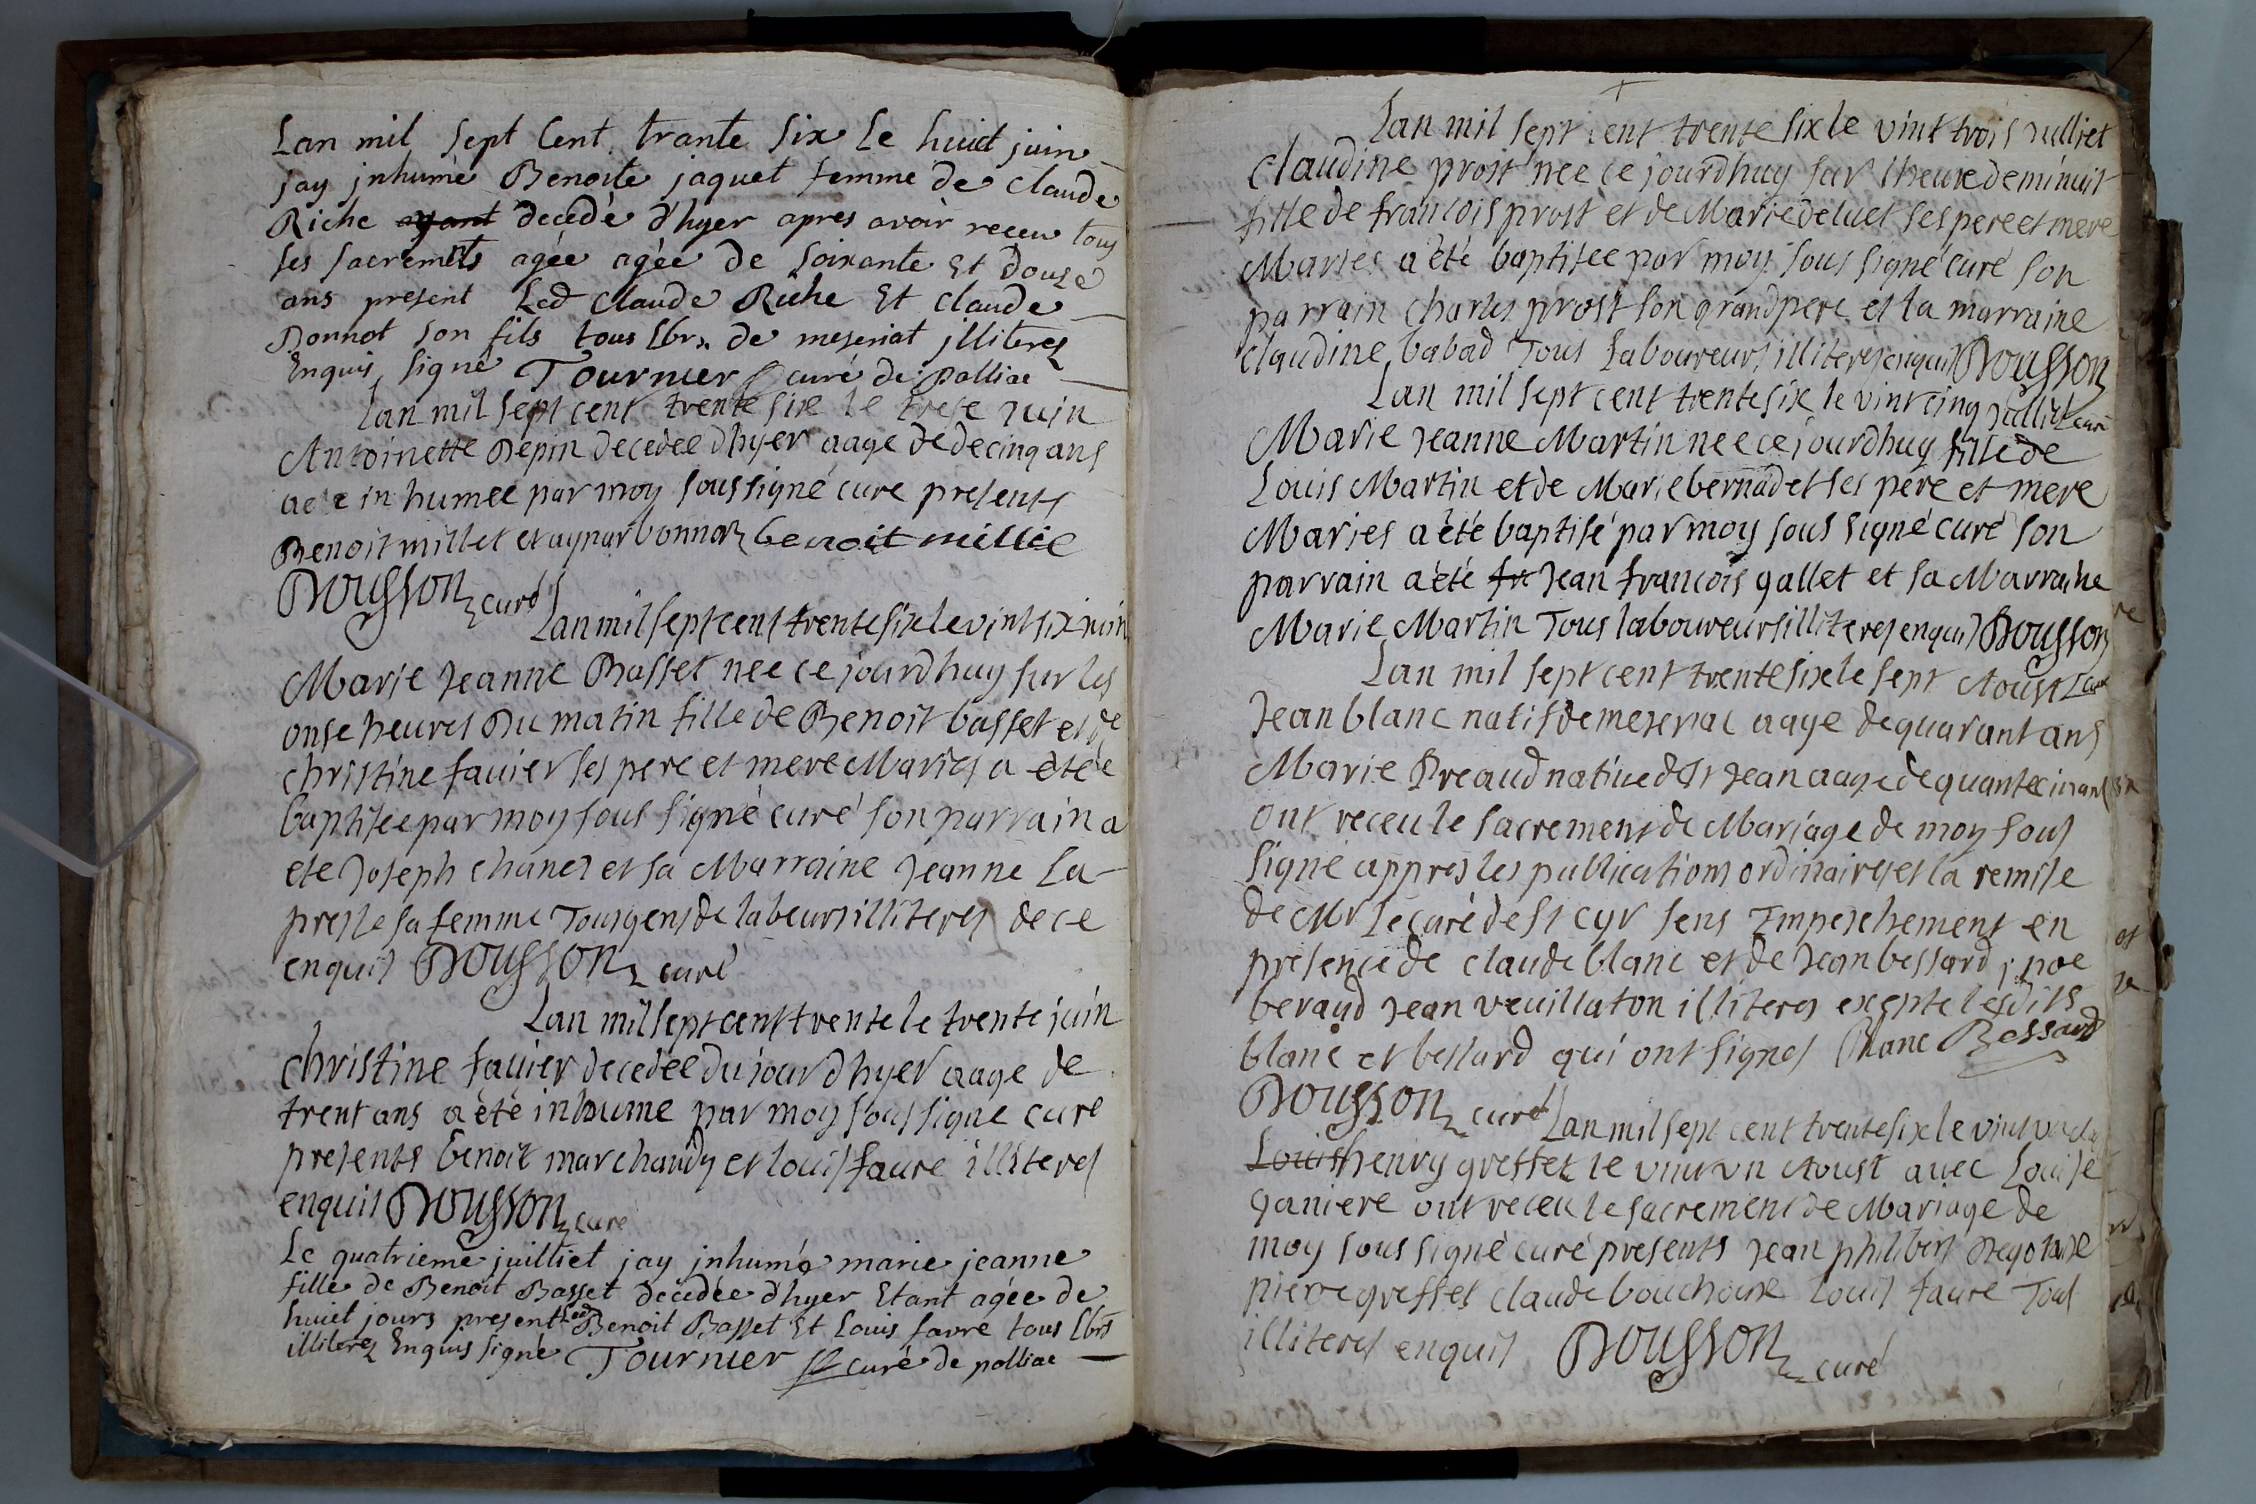 Lan mil sept Cent trante six le huict juin
jay jnhumé Benoite jaquet femme de claude
Riche ayant decedé d'hyer apres avoir receu tous
ses sacremts agée agée de soixante Et douze
ans present Led Claude Riche Et claude
Donnot son fils tous Lbrs de meseriat jlliterez
Enquis signé Tournier curé de Polliac
Lan mil sept cent trente six le trese juin
Antoinette Pepin decedee dhyer aage de decinq ans
a ete in humee par moy soussigné cure presents
Benoit millet et aynar bonnor benoit millie
Dousson curé
Lan mil sept cent trente six le vint six juin
Marie Jeanne Basset nee ce jourdhuy sur les
onse heures Du matin fille de Benoit basset et de
christine favier ses pere et mere Maries a été
baptisee par moy sous signé curé son parrain a
ete Joseph chanel et sa Marraine Jeanne La-
presle sa femme Tous gens de labeurs illiteres de ce
enquis Dousson curé
Lan mil sept cent trente le trente juin
christine favier decedée du jour dhyer aage de
trent ans a été inhume par moy sous signe cure
presents benoit marchandy et louis faure illiteres
enquis Dousson cure
Le quatrieme juilliet jay jnhumé marie jeanne
fille de Benoit Basset decedée d'hyer Etant agée de
huict jours present Led Benoit Basset Et Louis favre tous Lbrs
illiterez Enquis signé Tournier curé de polliac
Lan mil sept cent trente six le vint trois Julliet
claudine prost nee ce jourdhuy sur lheure de minuit
fille de francois prost et de Marie deluet ses pere et mere
Maries a été baptisee par moy sous signé curé son
parrain charles prost son grand pere et la marraine
claudine babad Tous laboureurs illiteres enquis Dousson
Lan mil sept cent trente six le vint cinq julliet curé
Marie Jeanne Martin nee ce jourdhuy fille de
Louis Martin et de Marie bernadet ses pere et mere
Maries a été baptisé par moy sous signé curé son
parrain a été fr Jean francois gallet et sa Marraine
Marie Martin Tous laboureurs illiteres enquis Dousson
Lan mil sept cent trente six le sept Aoust curé
Jean blanc natif de meseriac aage de quarant ans
Marie Preaud native d St Jean aage de quante cin ans
ont receu le sacrement de Mariage de moy sous
signe appres les publications ordinaires et la remise
de Mr le curé de St cyr sens Impeschement en
presence de claude blanc et de Jean bessard j noe
beraud Jean veuillaton illiteres exepte lesdits
blanc et bessard qui ont signes Blanc Bessard
Dousson curé
Lan mil sept cent trente six le vint un
Louis henry greffet le vint un Aoust avec Louise
ganiere ont receu le sacrement de Mariage de
moy sous signé curé presents Jean philibert
pierre greffet claude bouchoux louis faure Tous
illiteres enquis Dousson curé